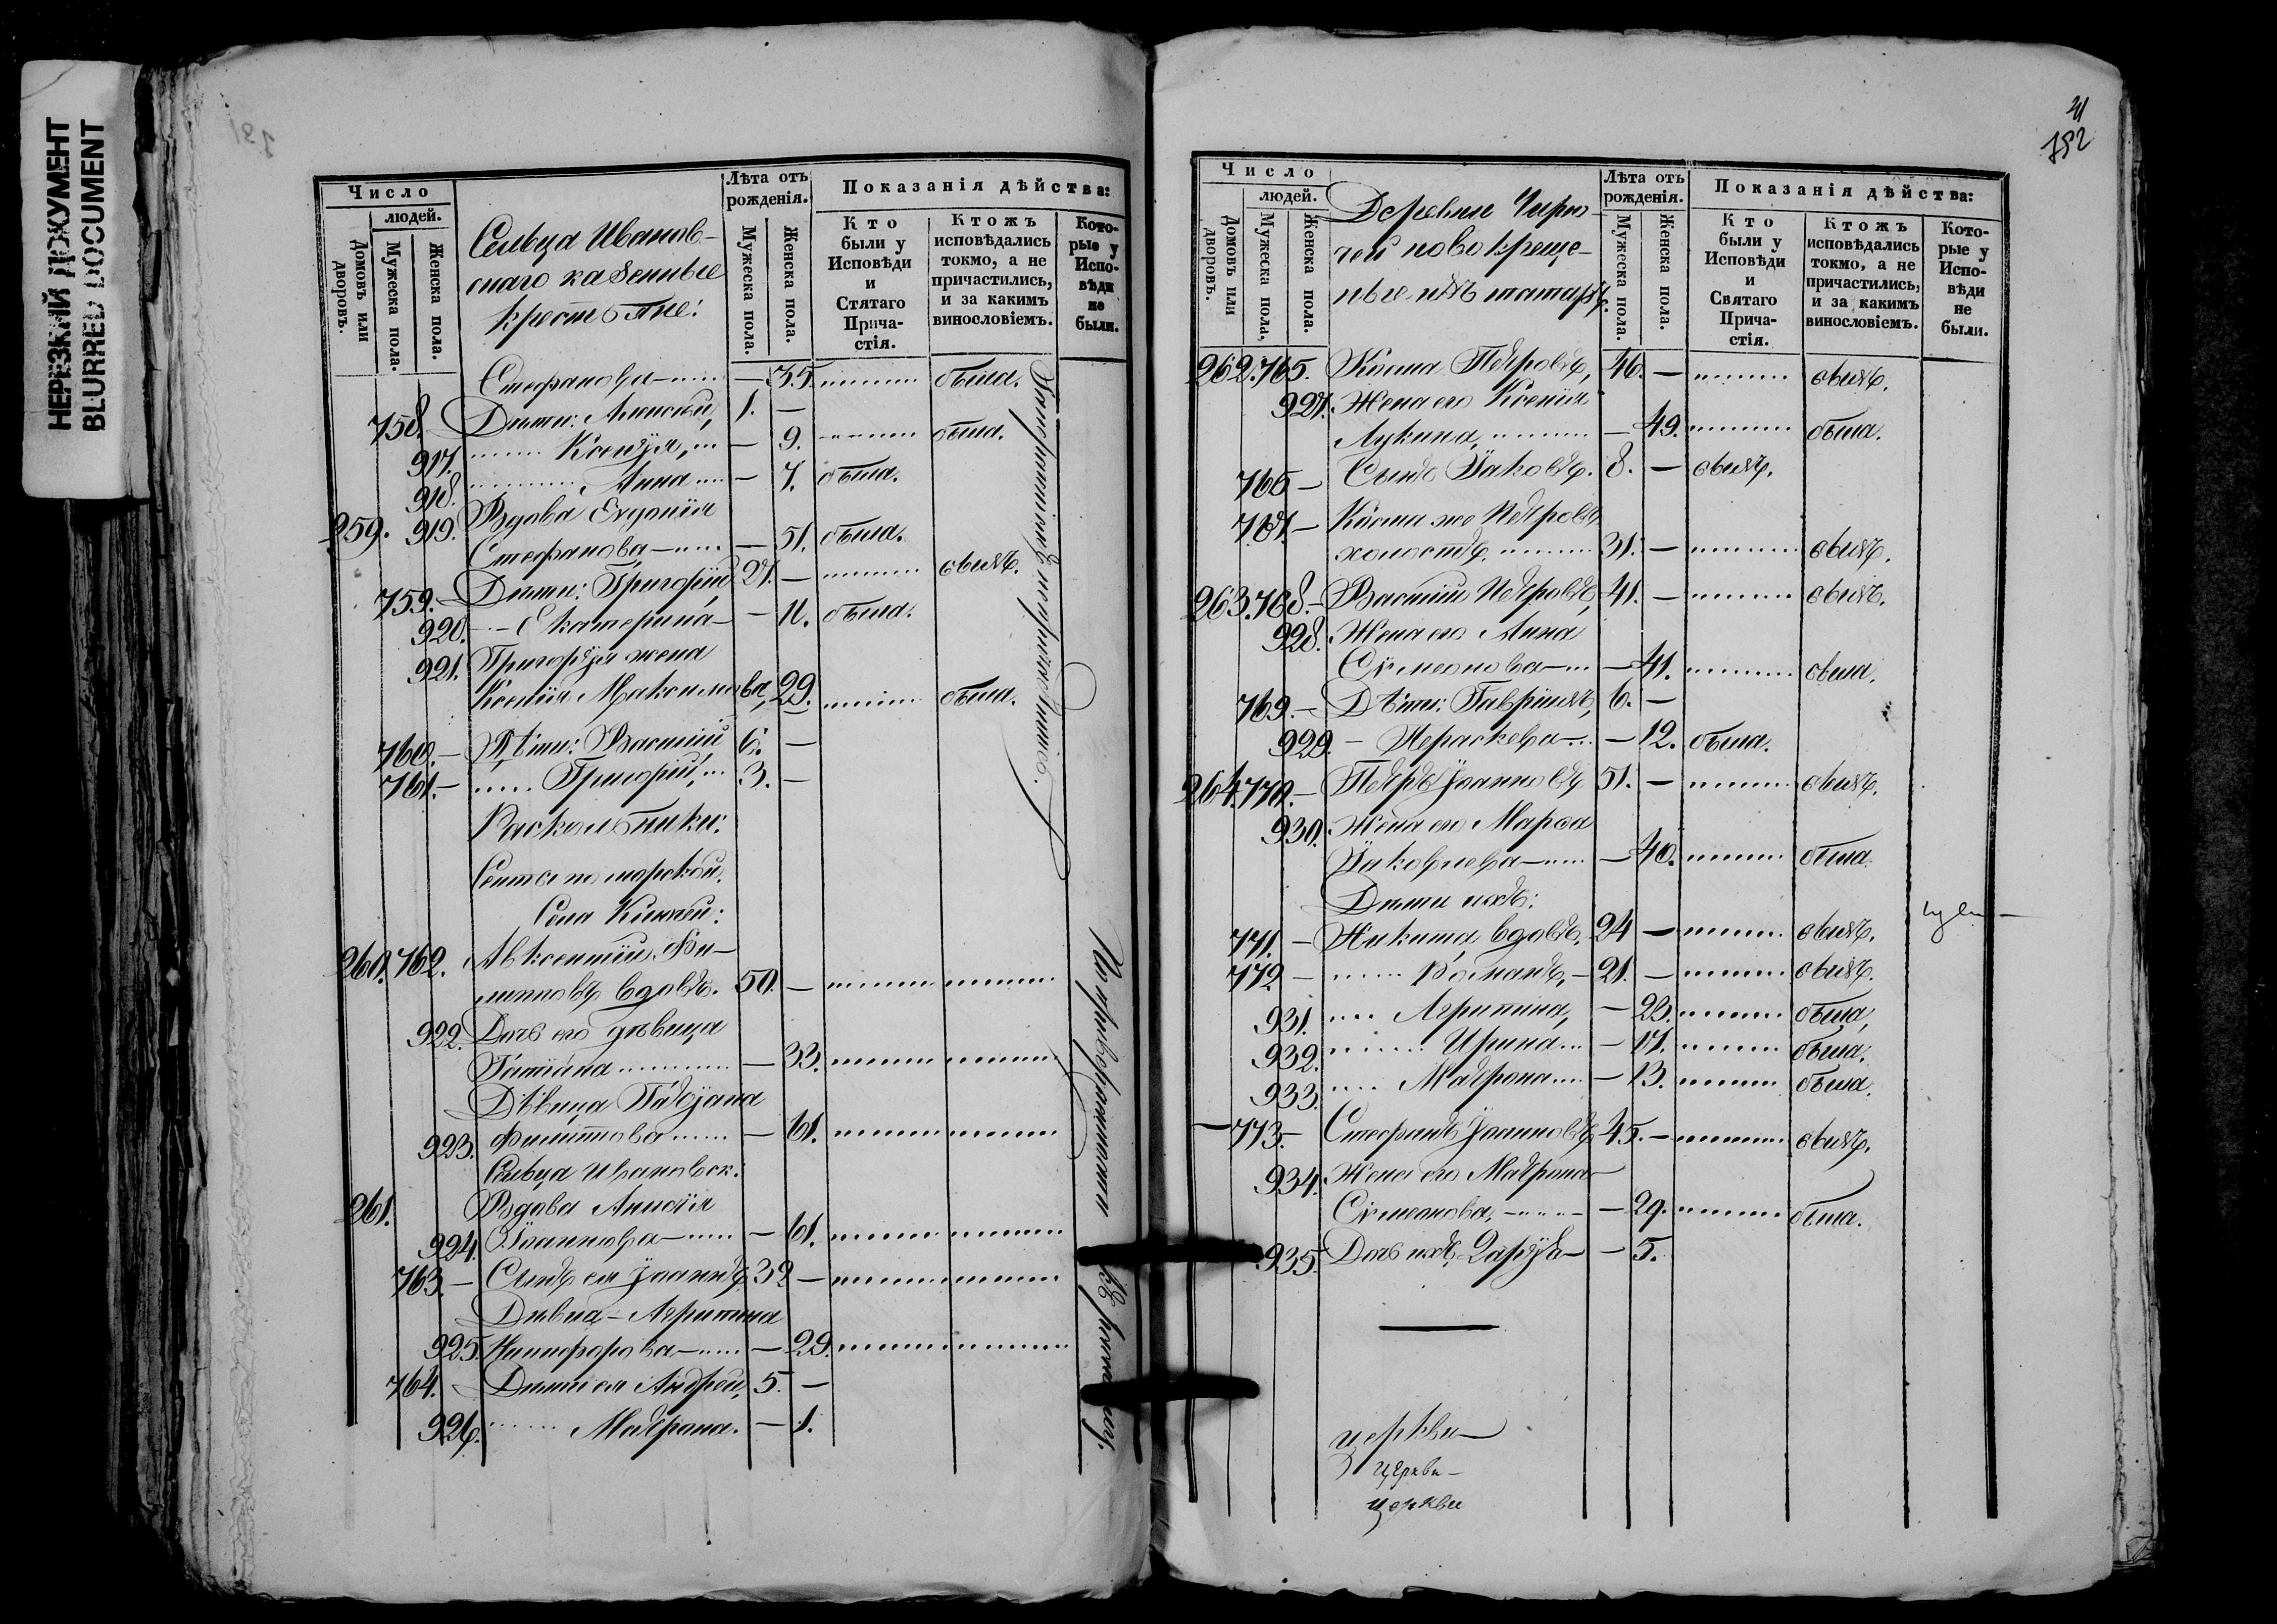 НЕРЕЗКИЙ ДОКУМЕНТ
BLURRED DOCUMENT
Число
людей.
Домовъ или дворовъ.
Мужеска пола.
Женска пола.
Сельца Иванов-
скаго казенные
крестьяне:
Лѣта отъ рожденія.
Мужеска пола.
Женска пола.
Показанія дѣйства:
Кто были у Исповѣди и Стятаго Прича-стія.
Ктожъ исповѣдались токмо, а не причастились, и за какимъ винословіемъ.
Кото-рые у Испо-вѣди не были.
Стефанова — 35. была.
758. Дѣти: Алексѣй, 1. —
917. Ксенія, — 9. была.
918. Анна — 7. была.
259. 919. Вдова Евдокія
Стефанова, — 51. была.
759. — Дѣти: Григорій 27. — былъ.
920. — Екатерина — 11. была.
921. Григорія жена
Ксенія Максимова, 29. была.
760. — Дѣти: Василій 6. —
761. — Григорій, 3. —
Раскольники:
Секты поморской.
Села Кинчеи:
260. 762. Авксентій Фи-
липповъ вдовъ. 50. —
922. Дочь его дѣвица
Татіана — 33.
Дѣвица Татіана
923. Филиппова — 61.
Сельца Ивановск:
261. Вдова Анисія
924. Іоаннова — 61.
763. — Сынъ ея Іоаннъ, 32 —
Дѣвка — Агрипина
925. Никифорова — 29.
764. — Дѣти ея Андрей, 5. —
926. Матрона. — 1.
192
Число
людей.
Домовъ или дворовъ.
Мужеска пола,
Женска пола.
Деревни Чирю-
чей новокреще-
ные изъ татаръ.
Лѣта отъ рожденія.
Мужеска пола.
Женска пола.
Показанія дѣйства:
Кто были у Исповѣди и Святаго Прича-стія.
Ктожъ исповѣдались токмо, а не причастились, и за какимъ винословіемъ.
Кото-рые у Испо-вѣди не были.
262. 765. Косма Петровъ, 46. — былъ.
927. Жена его Ксенія
Лукина, — 49. была.
766 — Сынъ Іаковъ. 8. — былъ.
767. — Косма же Петровъ
холостъ. 31. — былъ.
263. 768. — Василій Петровъ, 41. — былъ.
928. Жена его Анна
Сѵмеонова — 41. была.
769. — Дѣти: Гавріилъ, 6. —
929. — Параскева — 12. была.
264. 770. — Петръ Іоанновъ 51. — былъ.
930. Жена его Марѳа
Іаковлева — 40. была.
Дѣти ихъ:
771. — Никита вдовъ. 24 — былъ.
772. — Романъ, — 21. — былъ.
931. Агрипина, — 23. была,
932. Ирина — 17. была.
933. Матрона — 13. была.
— 773. — Стефанъ Іоанновъ 45. — былъ.
934. Жена его Матрона
Сѵмеонова, — 29. была.
935. Дочь ихъ Дарія — 5.
церкви
церкви
церкви